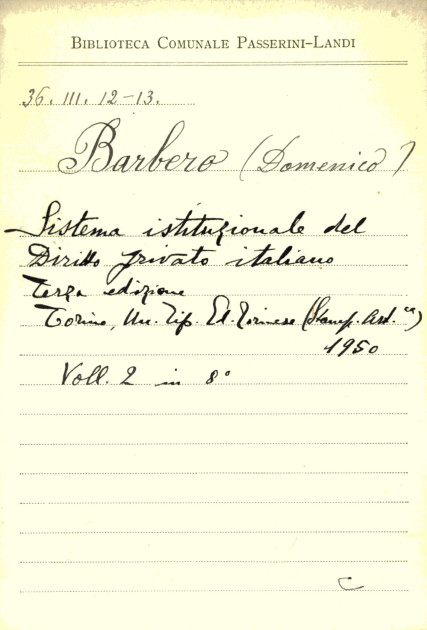 BIBLIOTECA COMUNALE PASSERINI-LANDI
36. III. 12-13.
Barbero (Domenico)
Sistema istituzionale del
Diritto privato italiano
Terza edizione
Torino, Un. Tip. Ed. Torinese (Stamp. Art.ca)
1950
Voll. 2 in 8°
C